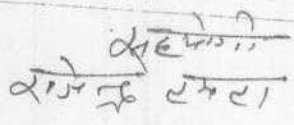 सहयोगी
राजेन्द्र हमहा